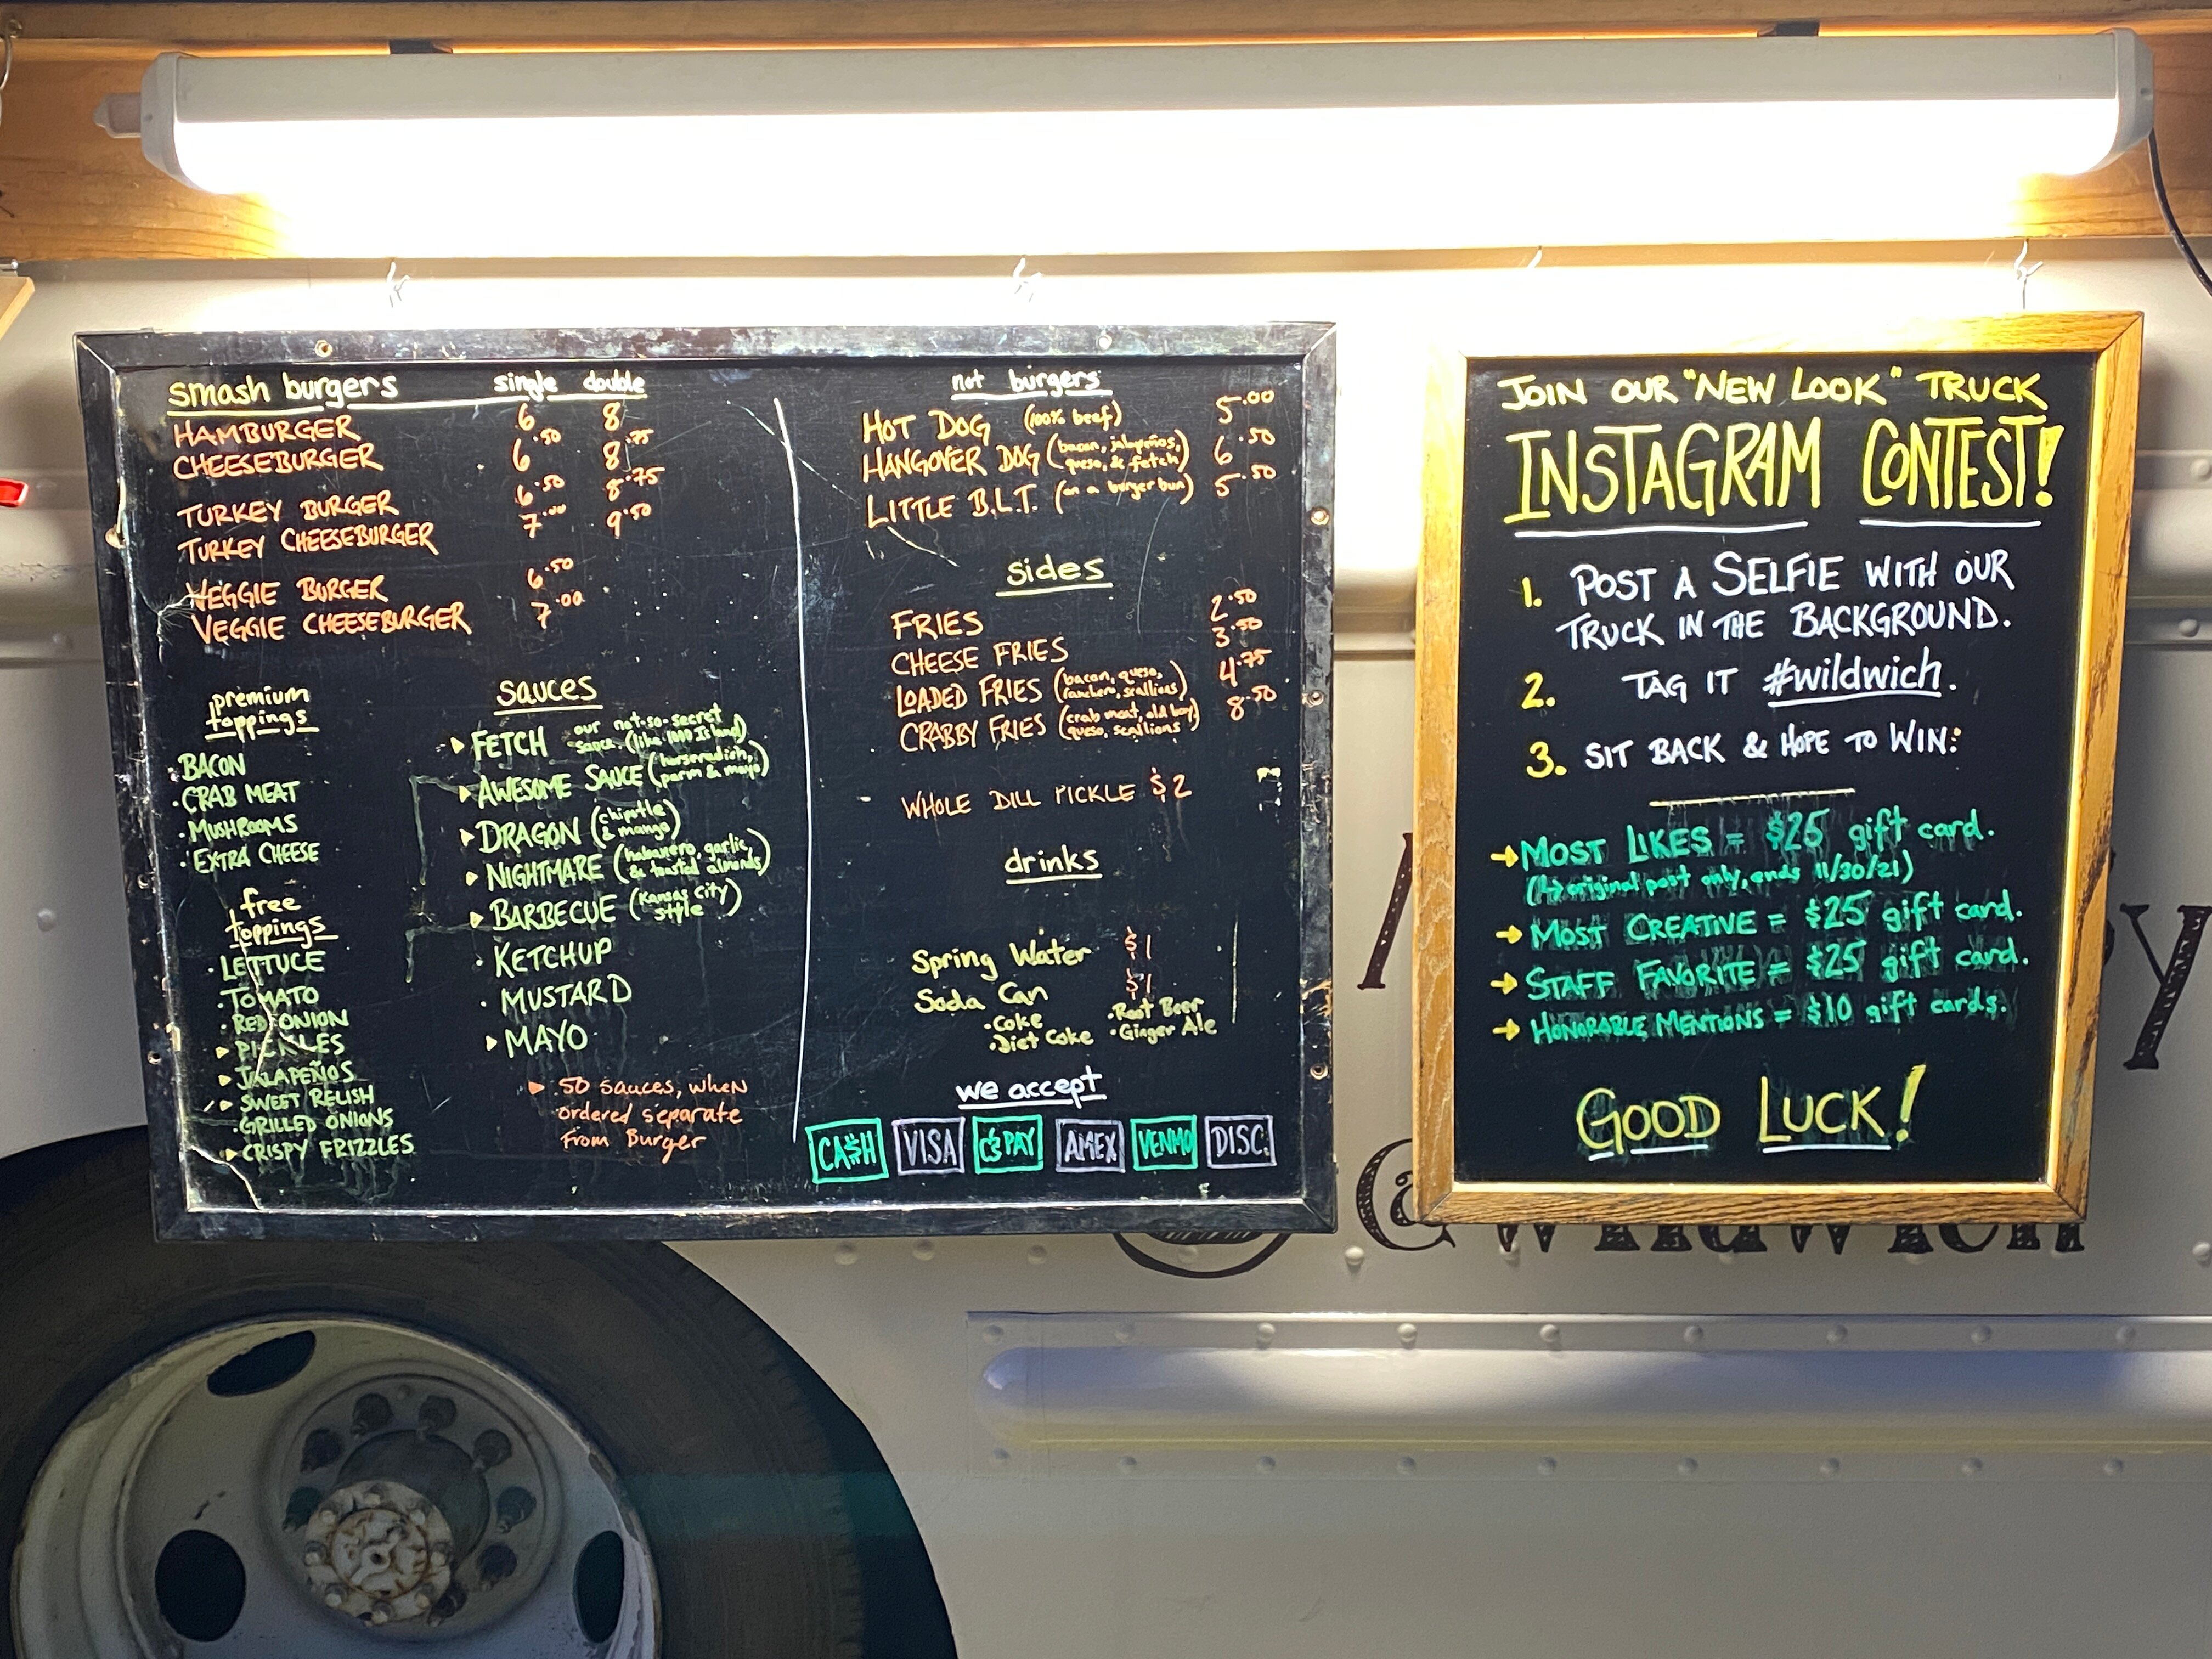 smash burgers single double
HAMBURGER 6 8
CHEESEBURGER 6.50 8.75
TURKEY BURGER 6.50 8.75
TURKEY CHEESEBURGER 7.00 9.50
VEGGIE BURGER 6.50
VEGGIE CHEESEBURGER 7.00
premium
toppings
BACON
CRAB MEAT
MUSHROOMS
EXTRA CHEESE
free
toppings
LETTUCE
TOMATO
RED ONION
PICKLES
JALAPEÑOS
SWEET RELISH
GRILLED ONIONS
CRISPY FRIZZLES
sauces
FETCH our not-so-secret
sauce (like 1000 Island)
AWESOME SAUCE (horseradish,
parm & mayo)
DRAGON (chipotle
& mango)
NIGHTMARE (habanero, garlic,
& toasted almonds)
BARBECUE (Kansas City
style)
KETCHUP
MUSTARD
MAYO
.50 sauces, when
ordered separate
from Burger
not burgers
HOT DOG (100% beef) 5.00
HANGOVER DOG (bacon, jalapeños, 6.50
queso, & fetch)
LITTLE B.L.T. (on a burger bun) 5.50
sides
FRIES 2.50
CHEESE FRIES 3.50
LOADED FRIES (bacon, queso, 4.75
ranchero, scallions)
CRABBY FRIES (crab meat, old bay, 8.50
queso, scallions)
WHOLE DILL PICKLE $2
drinks
Spring Water $1
Soda Can $1
·Coke ·Root Beer
·Diet Coke ·Ginger Ale
we accept
CA$H VISA PAY AMEX VENMO DISC.
JOIN OUR "NEW LOOK" TRUCK
INSTAGRAM CONTEST!
1. POST A SELFIE WITH OUR
TRUCK IN THE BACKGROUND.
2. TAG IT #wildwich.
3. SIT BACK & HOPE TO WIN:
MOST LIKES = $25 gift card.
original post only, ends 11/30/21)
MOST CREATIVE = $25 gift card.
STAFF FAVORITE = $25 gift card.
HONORABLE MENTIONS = $10 gift cards.
GOOD LUCK!
@wildwich